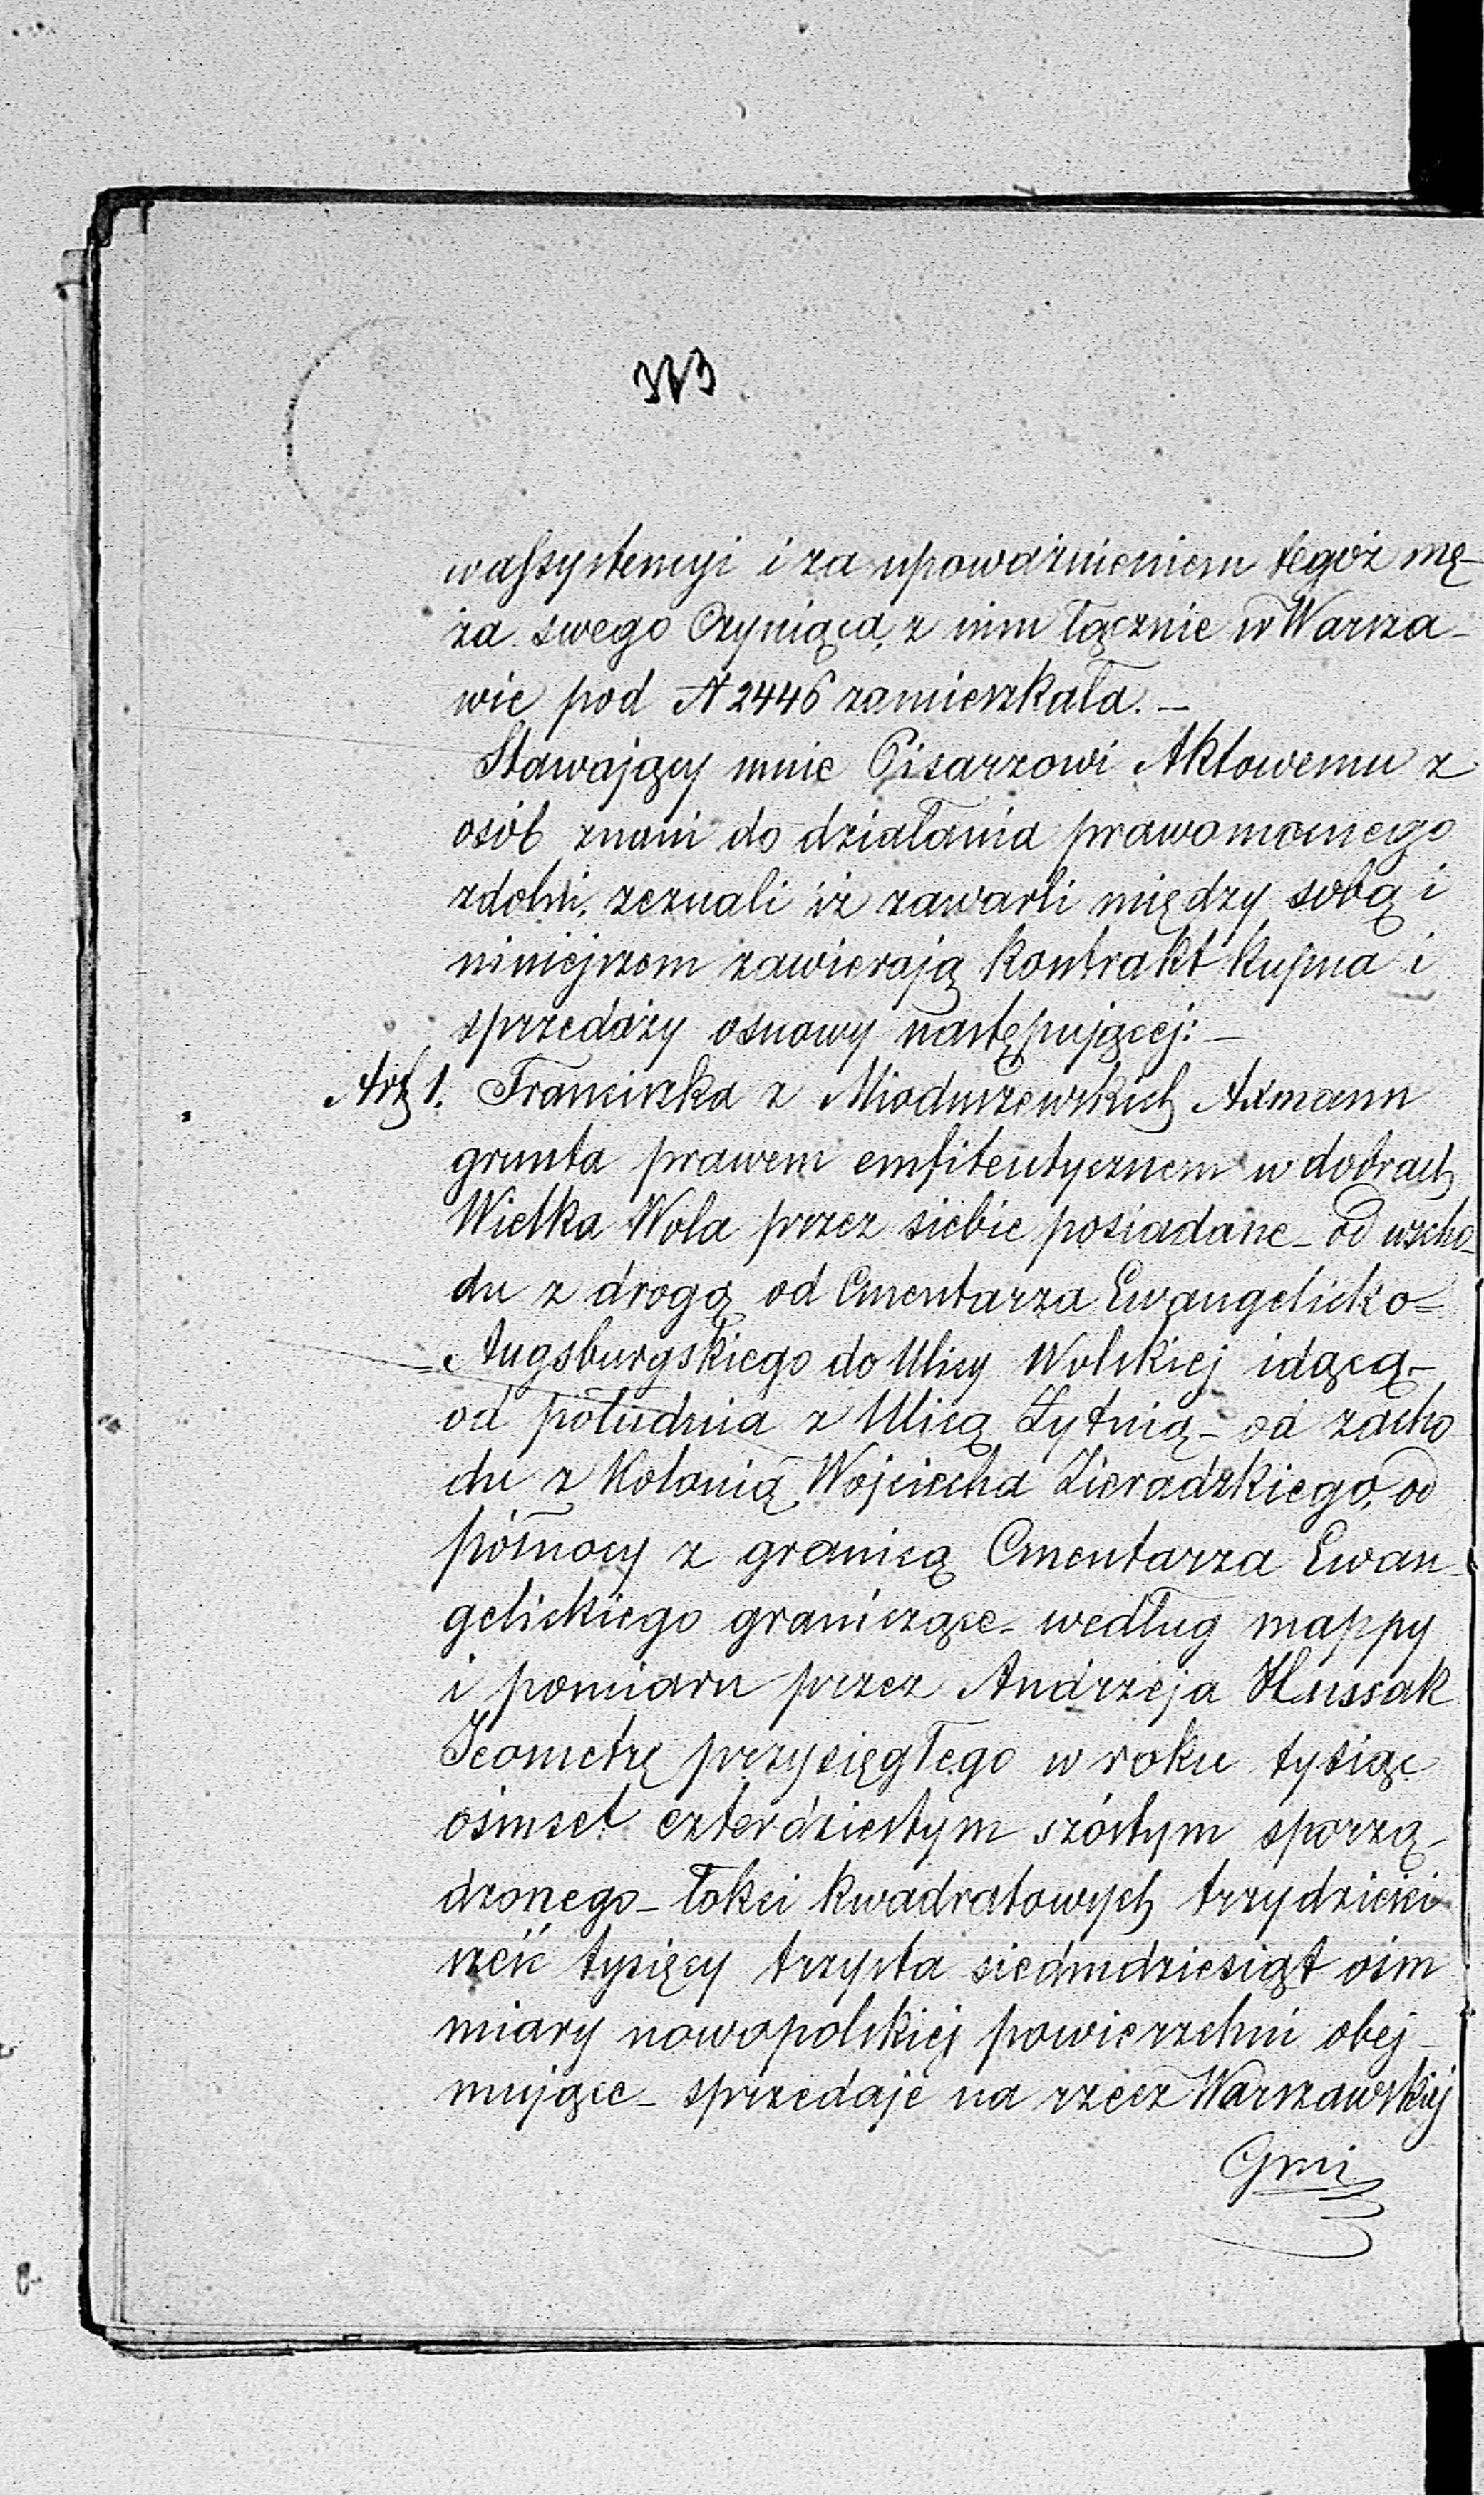 373
w assystencyi i za upoważnieniem tegóż mę-
ża swego Czyniąca, z nim łącznie w Warsza-
wie pod N 2446 zamieszkała. -
Stawający mnie Pisarzowi Aktowemu z
osób znani do działania prawomocnego
zdolni, zeznali iż zawarli między sobą i
niniejszem zawierają kontrakt kupna i
sprzedaży osnowy następującej: -
Art 1. Franciszka z Mioduszewskich Axmann
grunta prawem emfiteutycznem w dobrach
Wielka Wola przez siebie posiadane - od wscho-
du z drogą od Cmentarza Ewangelicko=
=Augsburgskiego do Ulicy Wolskiej idącą -
od południa z Ulicą Żytnią - od zacho
du z Kolonią Wojciecha Zieradzkiego, od
północy z granicą Cmentarza Ewan-
gelickiego graniczące - według mappy
i pomiaru przez Andrzeja Hussak
Jeometrę przysięgłego w roku tysiąc
ośmset czterdziestym szóstym sporzą-
dzonego - łokci kwadratowych trzydzieści
sześć tysięcy trzysta siedmdziesiąt ośm
miary nowopolskiej powierzchni obej-
mujące - sprzedaje na rzecz Warszawskiej
Gmi